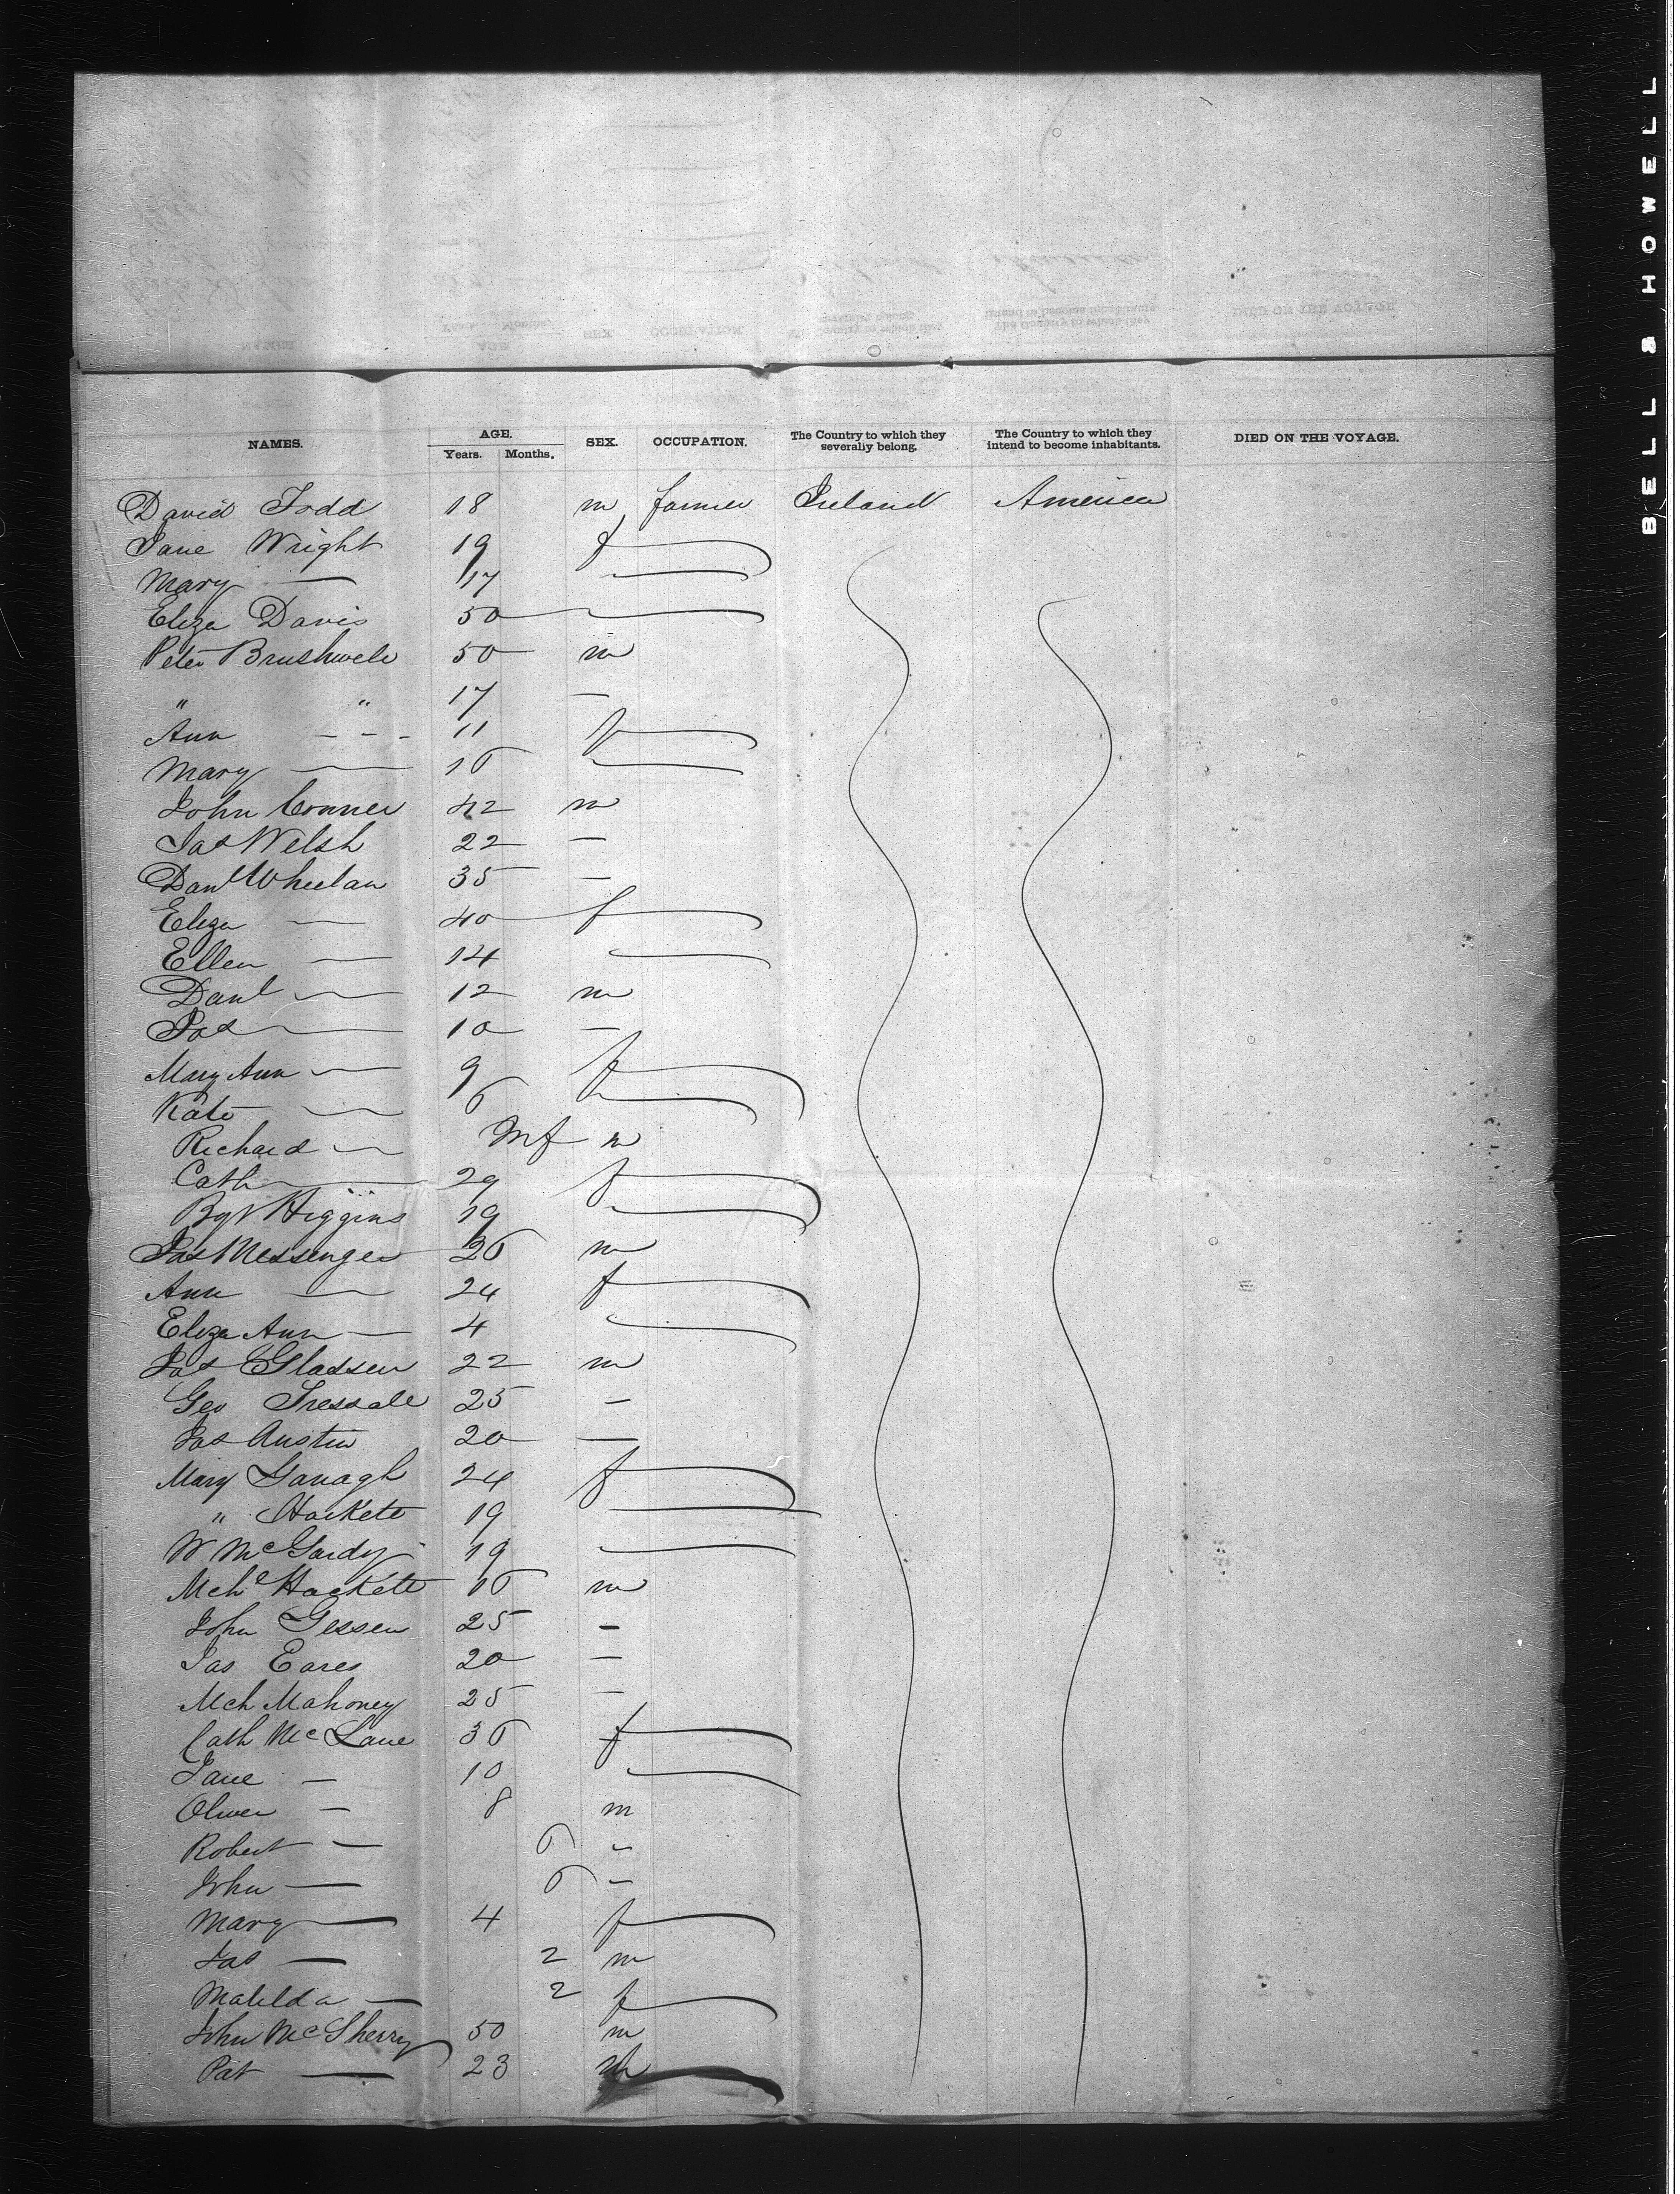 NAMES. AGE. SEX. OCCUPATION. The Country to which they severally belong. The Country to which they intend to become inhabitants. DIED ON THE VOYAGE.
Years. Months.
David Todd 18 m farmer Ireland America
Jane Wright 19 f
Mary — 17
Eliza Davis 50
Peter Brushwell 50 m
" " 17 —
Ann - - - 11 f
Mary — 16
John Conner 42 m
Jas Welsh 22 —
Danl Wheelan 35 —
Eliza — 40 f
Ellen — 14
Danl — 12 m
Jas — 10 —
Mary Ann — 9 f
Kate — 6
Richard — Inf m
Cath — 29 f
Bgt Higgins 19
Jas Messenger 26 m
Ann — 24 f
Eliza Ann — 4
Jas Glassen 22 m
Geo 25 —
Jas Austin 20 —
Mary Ganagh 24 f
" Hackett 19
W McGardy 19
Mchl Hackett 16 m
John Gessen 25 —
Jas Eares 20 —
Mch Mahoney 25 —
Cath McLane 36 f
Jane — 10
Oliver — 8 m
Robert — 6 "
John — 6 "
Mary — 4 f
Jas — 2 m
Matilda — 2 f
John McSherry 50 m
Pat — 23 m
BELL & HOWELL